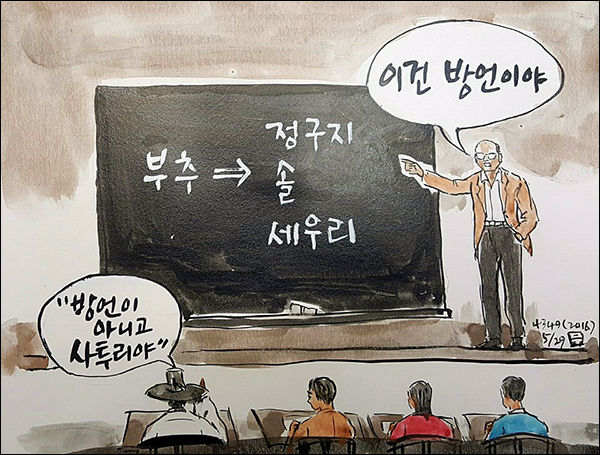 이건 방언이야
정구지
부추 ⇒ 솔
세우리
"방언이
아니고
사투리야"
4349(2016)
5/29